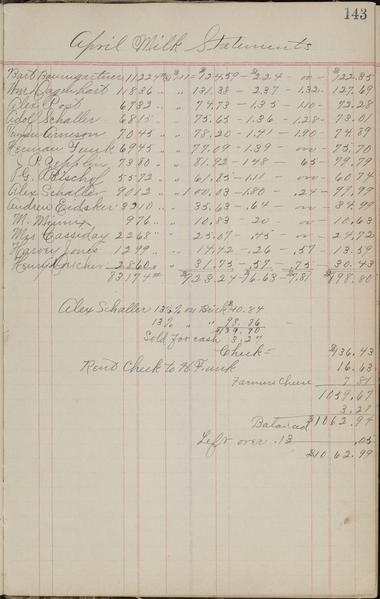 143
April Milk Statements
Bart Baumgartner 11224# @ $1.11 = $124.59 - 2.24 - on - $122.35
Wm Cagenhart 11836 " " 131.38 - 2.37 - 1.32 - 127.69
Alex Post 6732 " " 74.73 - 1.35 - 1.10 - 72.28
Adolf Schaller 6815 " " 75.65 - 1.36 - 1.28 - 73.01
Arneson 7045 " " 78.20 - 1.41 - 1.90 - 74.89
Herman Funk 6945 " " 77.09 - 1.39 - on - 75.70
P. Zepplin 7380 " " 81.92 - 1.48 - 65 - 79.79
P.G. 5572 " " 61.85 - 1.11 - on - 60.74
Alex Schaller 9012 " " 100.03 - 1.80 - .24 - 97.99
Andrew Eidsker 3210 " " 35.63 - .64 - on - 34.99
M. 976 " " 10.83 - 20 - on - 10.63
Mrs Cassiday 2268 " " 25.07 - .45 - on - 24.72
Harvey Jones 1299 " " 14.42 - .26 - .57 - 13.59
Henry 2860 " " 31.75 - .57 - .75 - 30.43
83174# $923.24 $16.63 $7.81 $898.80
Alex Schaller 13¾% on Brick $40.84
13% " " 98.86
$139.70
Sold for cash 3.27
Check = $136.43
Rent Check to H. Funk 16.63
Farmers Cheese 7.81
1059.67
3.27
Balanced $1062.94
Left over .13 .05
$1062.99